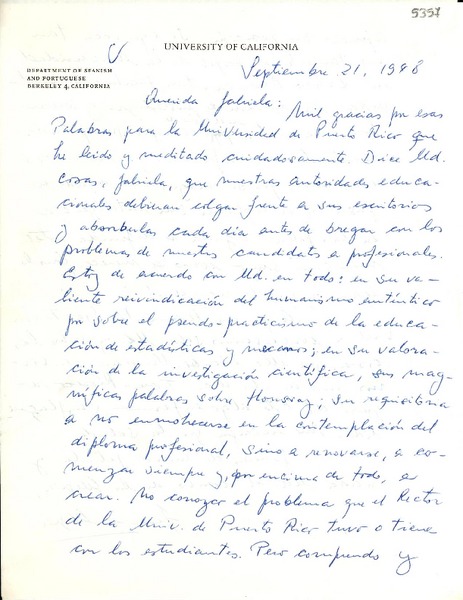 5357
UNIVERSITY OF CALIFORNIA
DEPARTMENT OF SPANISH
AND PORTUGUESE
BERKELEY 4, CALIFORNIA
Septiembre 21, 1948
Querida Gabriela: Mil gracias por esas
Palabras para la Universidad de Puerto Rico que
he leido y meditado cuidadosamente. Dice Ud.
cosas, Gabriela, que nuestras autoridades educa-
cionales debieran colgar frente a sus escritorios
y absorberlas cada día antes de bregar con los
problemas de nuestros candidatos a profesionales.
Estoy de acuerdo con Ud. en todo: en su va-
liente reivindicación del humanismo auténtico
por sobre el pseudo-practicismo de la educa-
ción de estadísticas y mecanos; en su valora-
ción de la investigación científica, sus mag-
níficas palabras sobre Houssay; su requisitoria
a no enmohecerse en la contemplación del
diploma profesional, sino a renovarse, a co-
menzar siempre y, por encima de todo, a
crear. No conozco el problema que el Rector
de la Univ. de Puerto Rico tuvo o tiene
con los estudiantes. Pero comprendo y